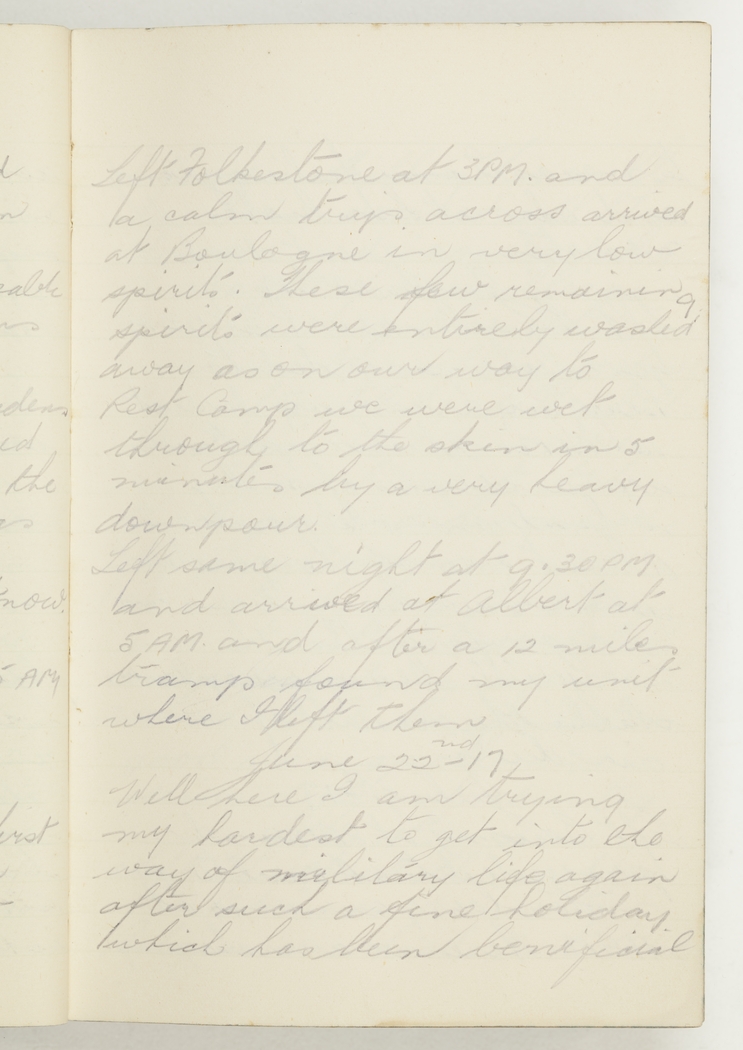 Left Folkestone at 3PM. and
a calm trip across arrived
at Boulogne in very low
spirits. These few remaining
spirits were entirely washed
away as on our way to
Rest Camp we were wet
through to the skin in 5
minutes by a very heavy
downpour.
Left same night at 9.30PM
and arrived at Albert at
5 AM. and after a 12 miles
tramp found my unit
where I left them
June 22nd-17
Well here I am trying
my hardest to get into the
way of military life again
after such a fine holiday
which has been beneficial